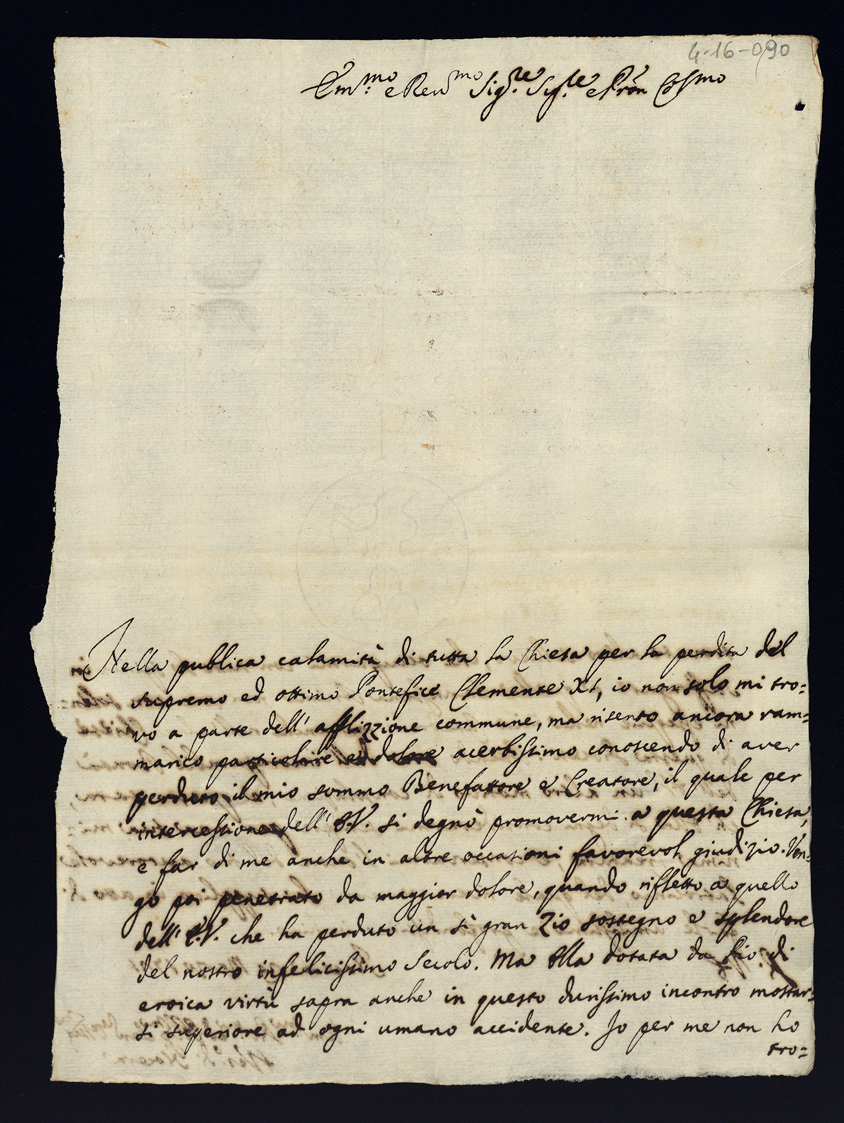 4-16-090
Em.mo e Rev.mo Sig.re Sig.re e Pron Col.mo
Nella publica calamità di tutta la Chiesa per la perdita del
supremo ed ottimo Pontefice Clemente XI, io non solo mi tro=
vo a parte dell'afflizzione commune, ma risento ancora ram=
marico particolare ed dolore acerbissimo conoscendo di aver
perduto il mio sommo Benefattore e Creatore, il quale per
intercessione dell'E.V. si degnò promovermi a questa Chiesa,
e far di me anche in altre occasioni favorevol giudizio. Ven=
go poi penetrato da maggior dolore, quando rifletto a quello
dell'E.V. che ha perduto un sì gran Zio sostegno e splendore
del nostro infelicissimo secolo. Ma Ella dotata da Dio di
eroica virtù saprà anche in questo durissimo incontro mostrar=
si superiore ad ogni umano accidente. Io per me non ho
tro=